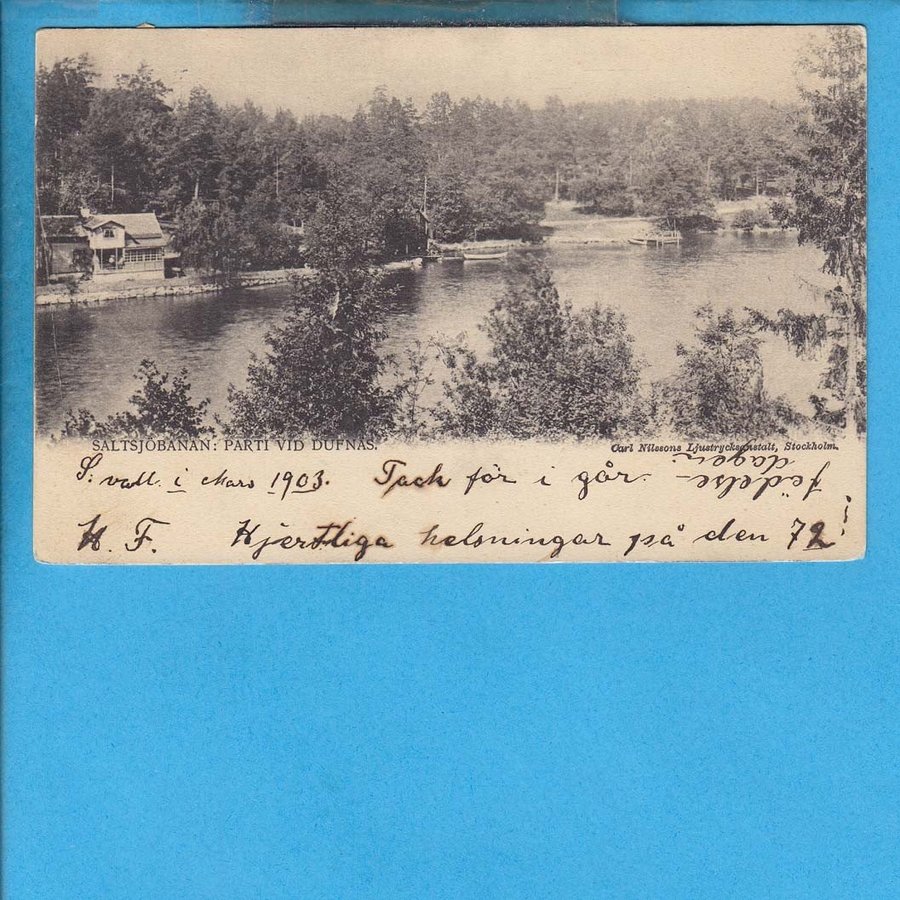 SALTSJÖBANAN: PARTI VID DUFNÄS.
Carl Nilssons Ljustrycksanstalt, Stockholm.
S. vall. i Mars 1903. Tack för i går.
H. F. Hjertliga helsningar på den 72!
födelse-
dagen.